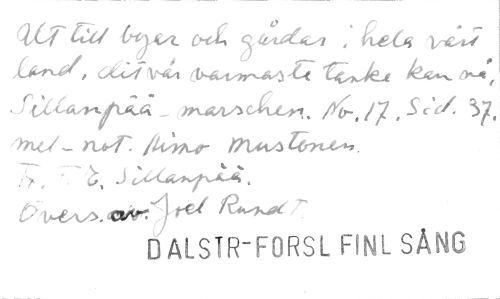 Ut till byar och gårdar i hela vårt
land, dit vår varmaste tanke kan nå,
Sillanpää-marschen. No. 17. Sid. 37.
mel-not. Aimo Mustonen.
Fr. F. E. Sillanpää.
Övers. av. Joel Rundt.
DALSTR-FORSL FINL SÅNG